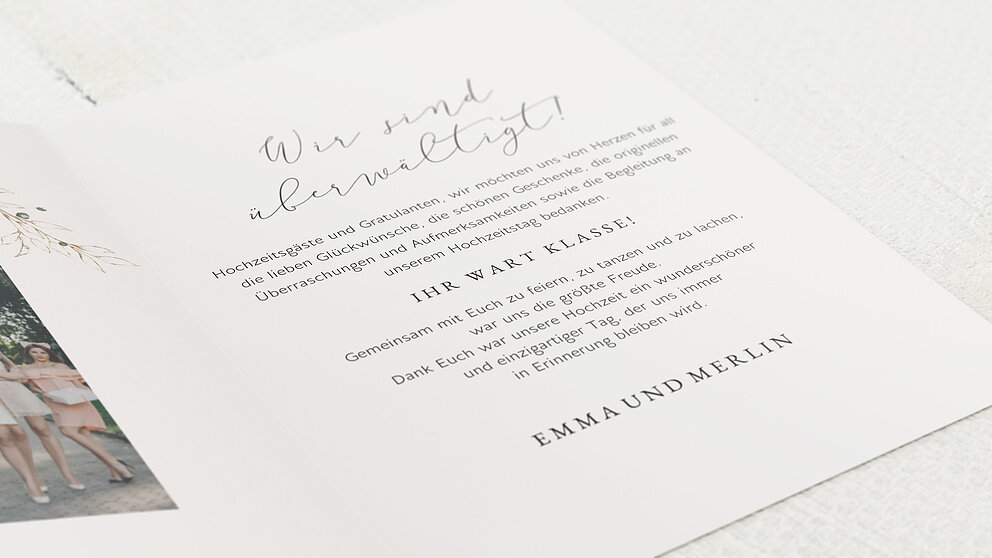 Wir sind
überwältigt!
Hochzeitsgäste und Gratulanten, wir möchten uns von Herzen für all
die lieben Glückwünsche, die schönen Geschenke, die originellen
Überraschungen und Aufmerksamkeiten sowie die Begleitung an
unserem Hochzeitstag bedanken.
IHR WART KLASSE!
Gemeinsam mit Euch zu feiern, zu tanzen und zu lachen,
war uns die größte Freude.
Dank Euch war unsere Hochzeit ein wunderschöner
und einzigartiger Tag, der uns immer
in Erinnerung bleiben wird.
EMMA UND MERLIN